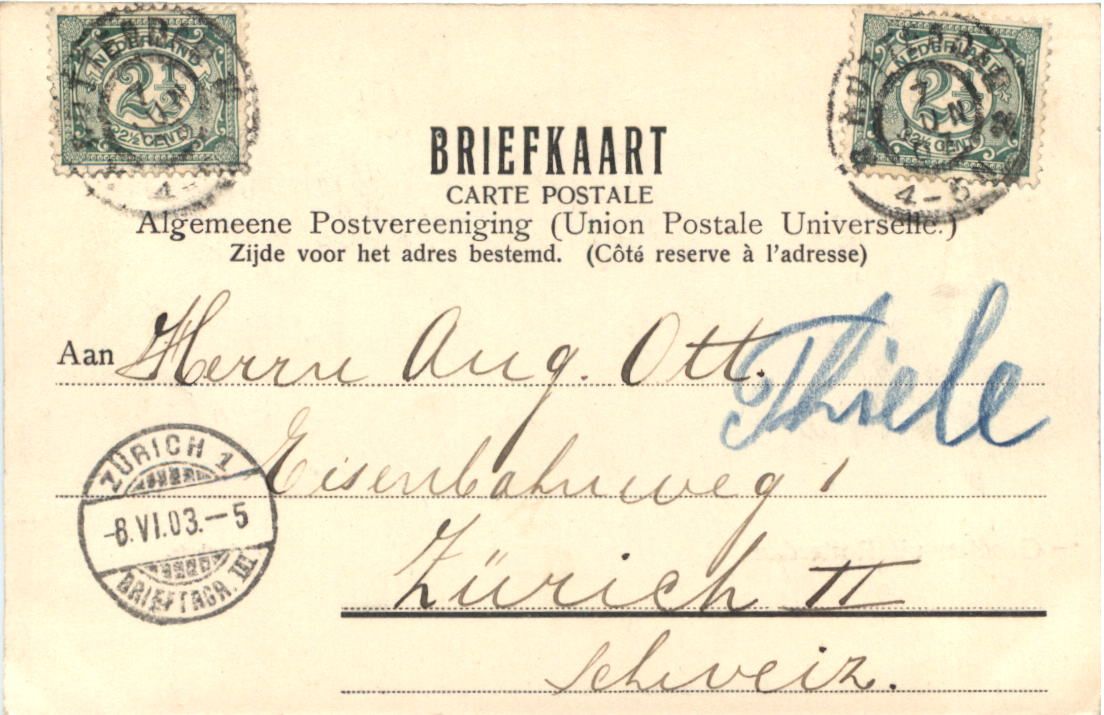 NEDERLAND
2½
2½ CENT
4-
NEDERLAND
2½
2½ CENT
4-5
BRIEFKAART
CARTE POSTALE
Algemeene Postvereeniging (Union Postale Universelle.)
Zijde voor het adres bestemd. (Côté reserve à l'adresse)
Aan Herrn Aug. Ott.
Thiele
Eisenbahnweg 1
ZÜRICH 1
-8.VI.03.-5
BRIEFTRGR. III
Zürich II
Schweiz.